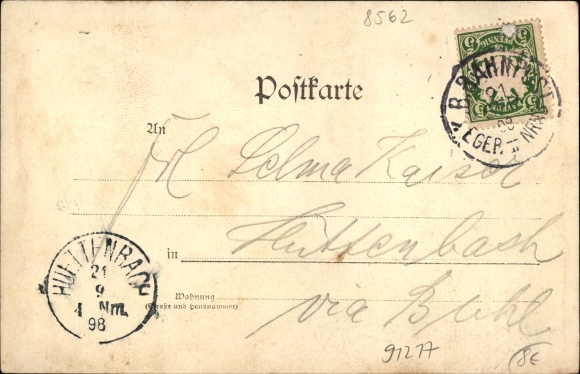 8562
Postkarte
K.B.BAHNPOST
21
EGER.
An
Frl Selma Kaiser
in Hüttenbach
Wohnung
(Straße und Hausnummer)
via Bühl
HUETTENBACH
21
9
4 Nm.
98
91277
8€